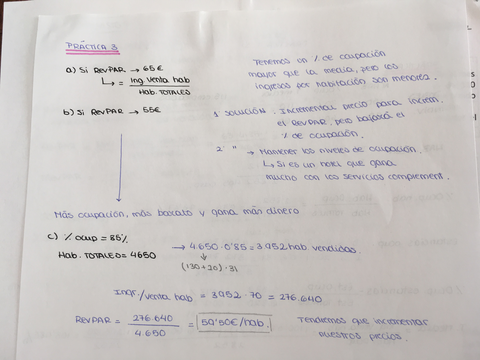 PRÁCTICA 3
a) Si RevPAR → 65€
↳ = Ing. venta hab / Hab. TOTALES
b) Si RevPAR → 55€
Tenemos un % de ocupación
mayor que la media, pero los
ingresos por habitación son menores.
1 SOLUCIÓN. Incrementar precio para increm.
el RevPAR, pero bajará el
% de ocupación.
2 " → Mantener los niveles de ocupación.
↳ Si es un hotel que gana
mucho con los servicios complement.
Más ocupación, más barato y gana más dinero
c) % ocup = 85%
Hab. TOTALES = 4650
→ 4.650 · 0'85 = 3.952 hab. vendidas.
(130+20) · 31
Ingr./venta hab = 3952 · 70 = 276.640
RevPAR = 276.640 / 4.650 = 59'50€/hab.
Tendremos que incrementar
nuestros precios.